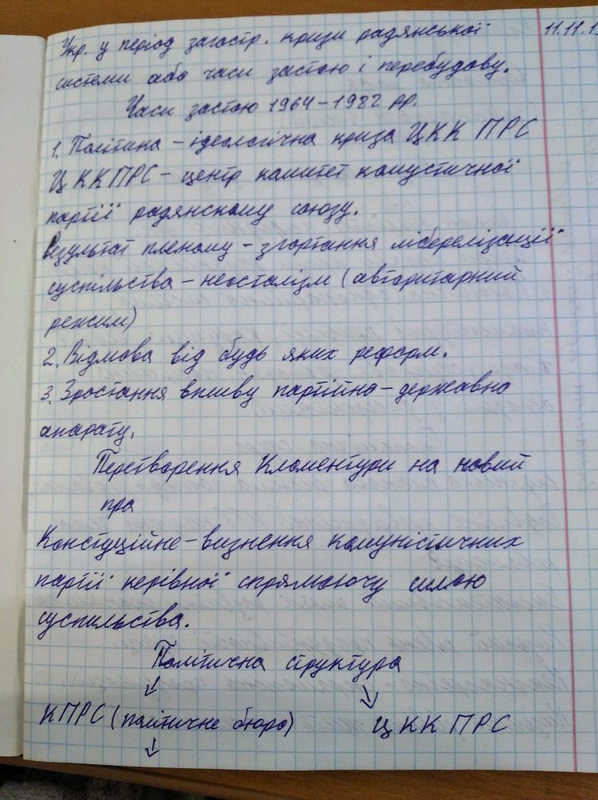 Укр. у період загостр. кризи радянської 11.11.1
системи або часи застою і перебудову.
Часи застою 1964-1982 рр.
1. Політина - ідеологічна криза ЦКК ПРС
ЦККПРС - центр комитет комустичної
партії радянскому союзу.
Результат пленому - згортання ліберелізації
суспільства - неосталізм (авторитарний
режим)
2. Відмова від будь яких реформ.
3. Зростання впливу партійно-державно
апарату.
Перетворення Кломентури на новий
пра
Констуційне-визнення комуністичних
партії керівної спрямоючу силою
суспільства.
Політична структура
КПРС (політичне бюро) ЦКК ПРС